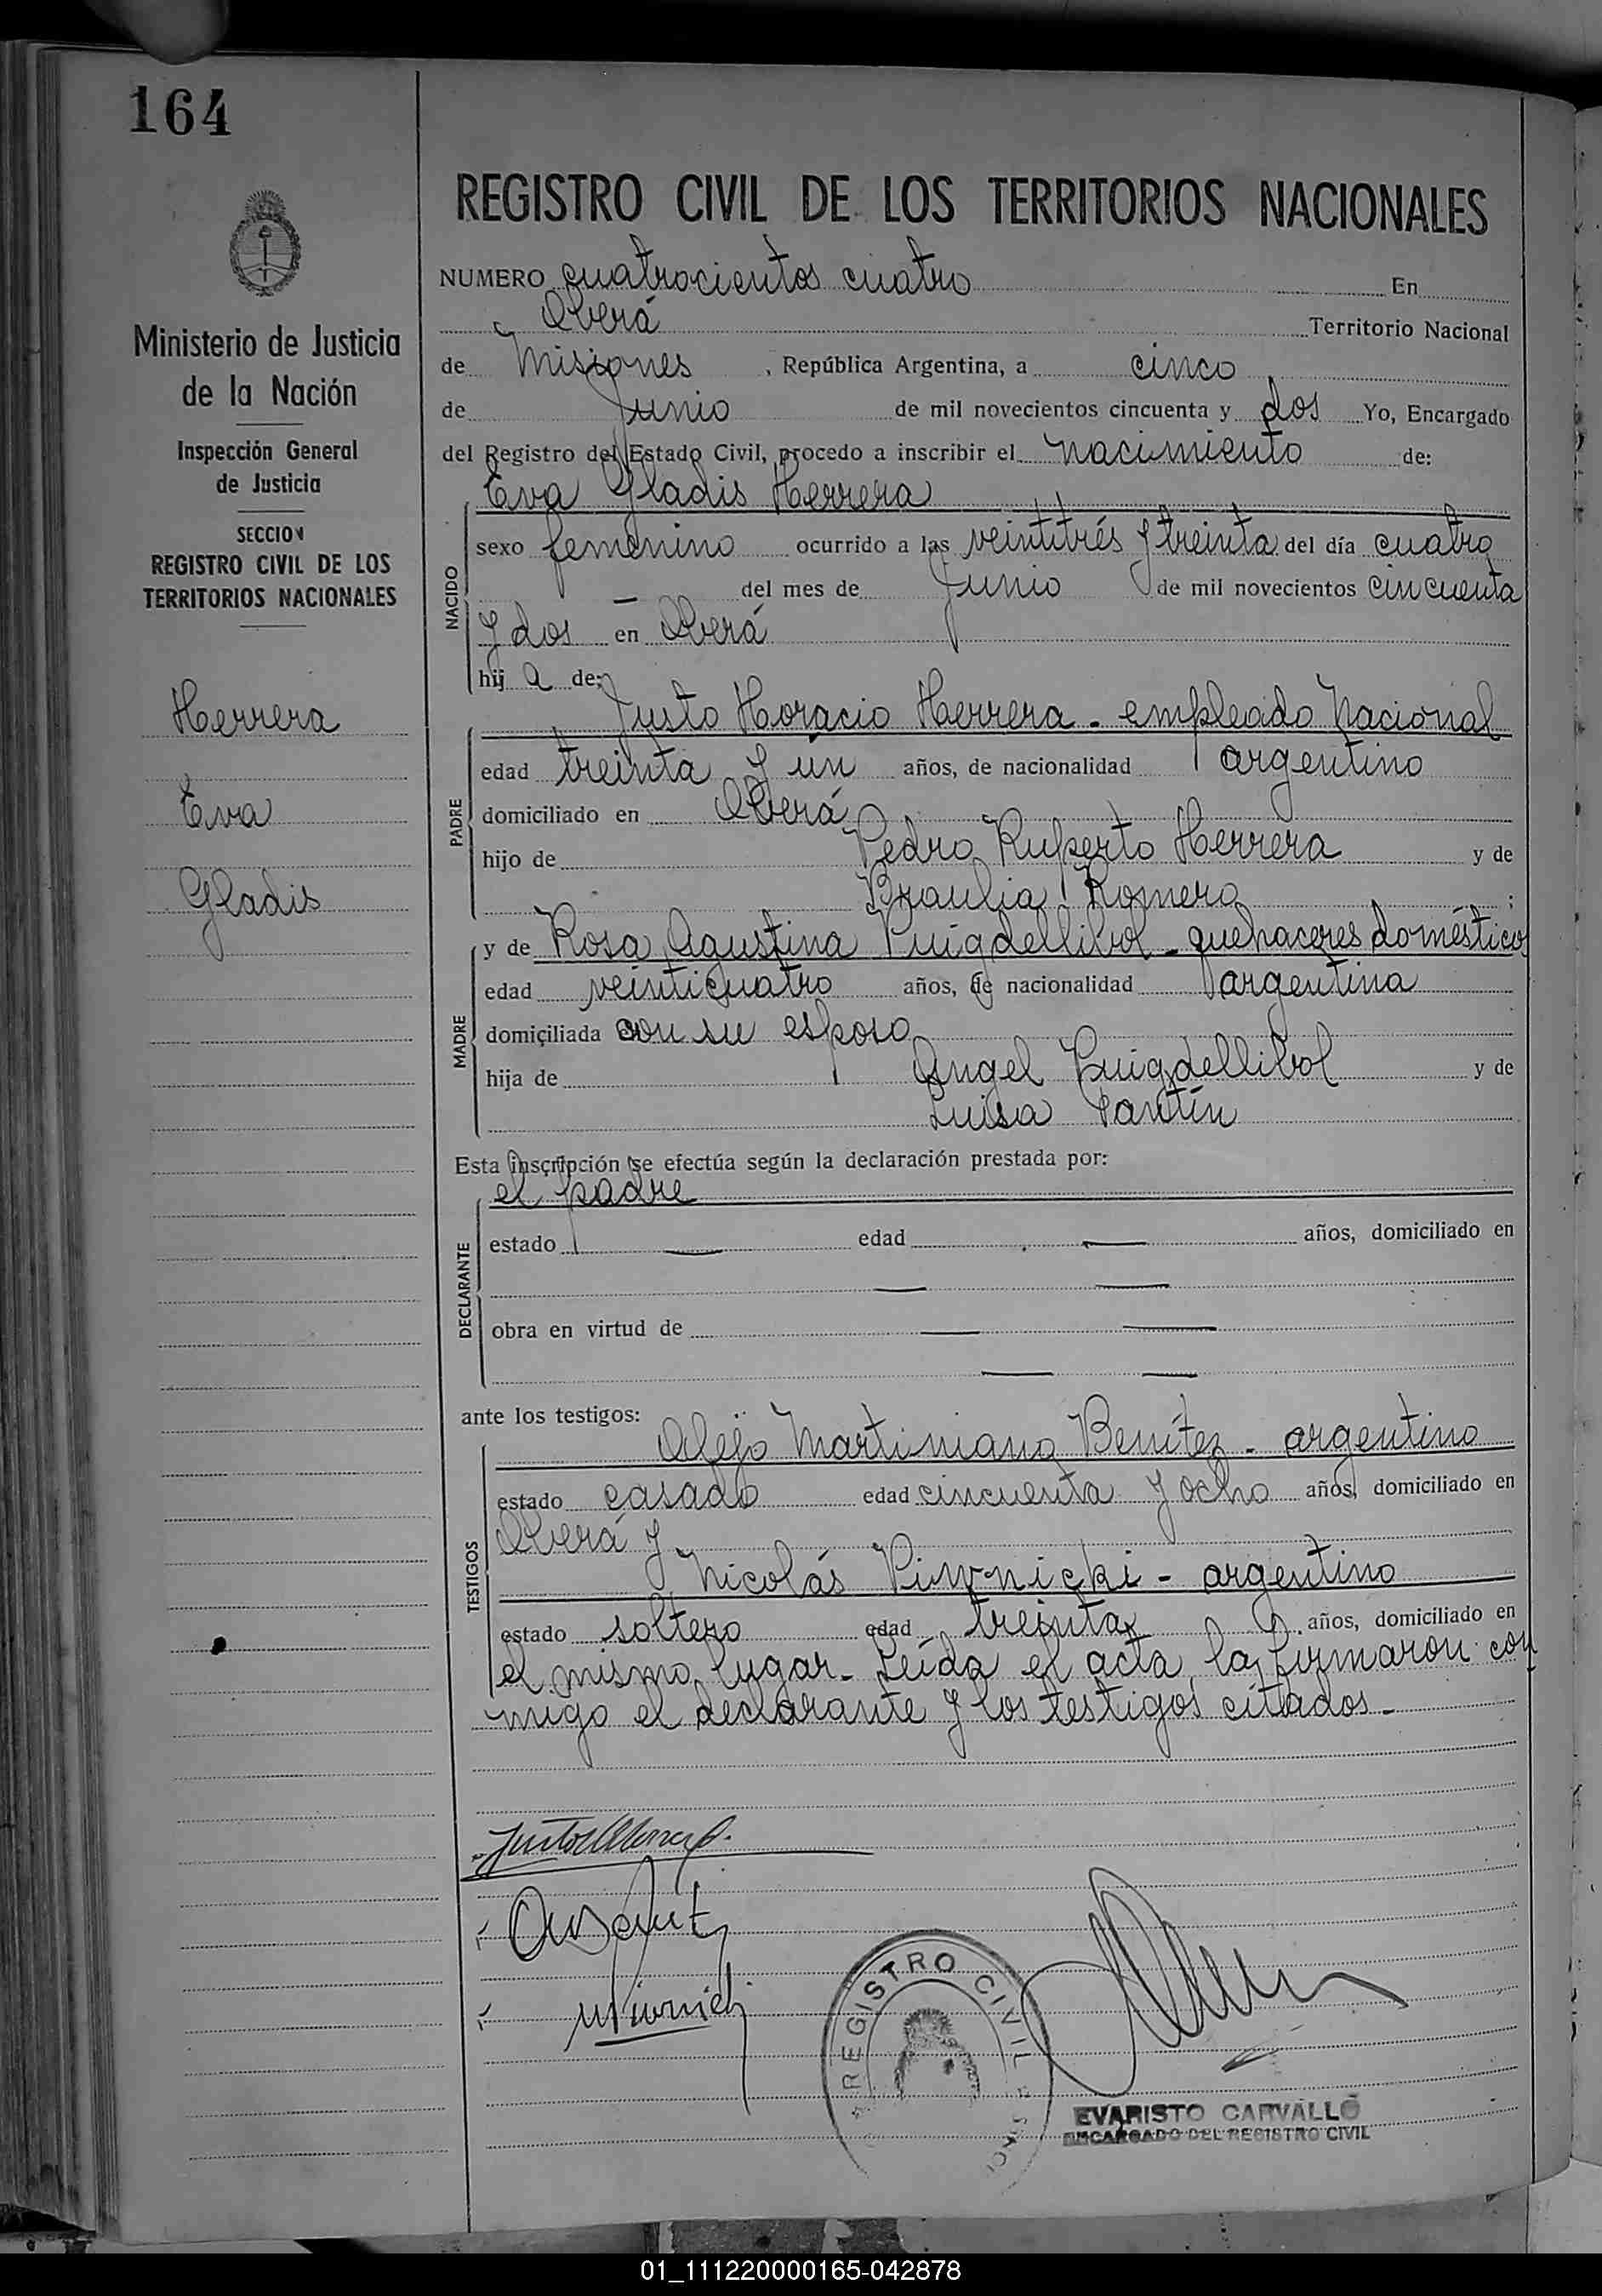 164
Ministerio de Justicia
de la Nación
Inspección General
de Justicia
SECCION
REGISTRO CIVIL DE LOS
TERRITORIOS NACIONALES
Herrera
Eva
Gladis
REGISTRO CIVIL DE LOS TERRITORIOS NACIONALES
NUMERO cuatrocientos cuatro En
Oberá Territorio Nacional
de Misiones, República Argentina, a cinco
de Junio de mil novecientos cincuenta y dos Yo, Encargado
del Registro del Estado Civil, procedo a inscribir el nacimiento de:
Eva Gladis Herrera
NACIDO
sexo femenino ocurrido a las veintitrés y treinta del día cuatro
— del mes de Junio de mil novecientos cincuenta
y dos en Oberá
hij a de:
PADRE
Justo Horacio Herrera - empleado Nacional
edad treinta y un años, de nacionalidad argentino
domiciliado en Oberá
hijo de Pedro Ruperto Herrera y de
Braulia Romero ;
MADRE
y de Rosa Agustina Puigdellibol - quehaceres domésticos
edad veinticuatro años, de nacionalidad argentina
domiciliada con su esposo
hija de Angel Puigdellibol y de
Luisa Pantín
Esta inscripción se efectúa según la declaración prestada por:
el padre
DECLARANTE
estado — edad — años, domiciliado en
— —
obra en virtud de — —
— —
ante los testigos:
TESTIGOS
Alejo Martiniano Benítez - argentino
estado casado edad cincuenta y ocho años, domiciliado en
Oberá y
Nicolás Piwnicki - argentino
estado soltero edad treinta años, domiciliado en
el mismo lugar - Leída el acta la firmaron con
migo el declarante y los testigos citados -
REGISTRO CIVIL
EVARISTO CARVALLO
ENCARGADO DEL REGISTRO CIVIL
01_111220000165-042878